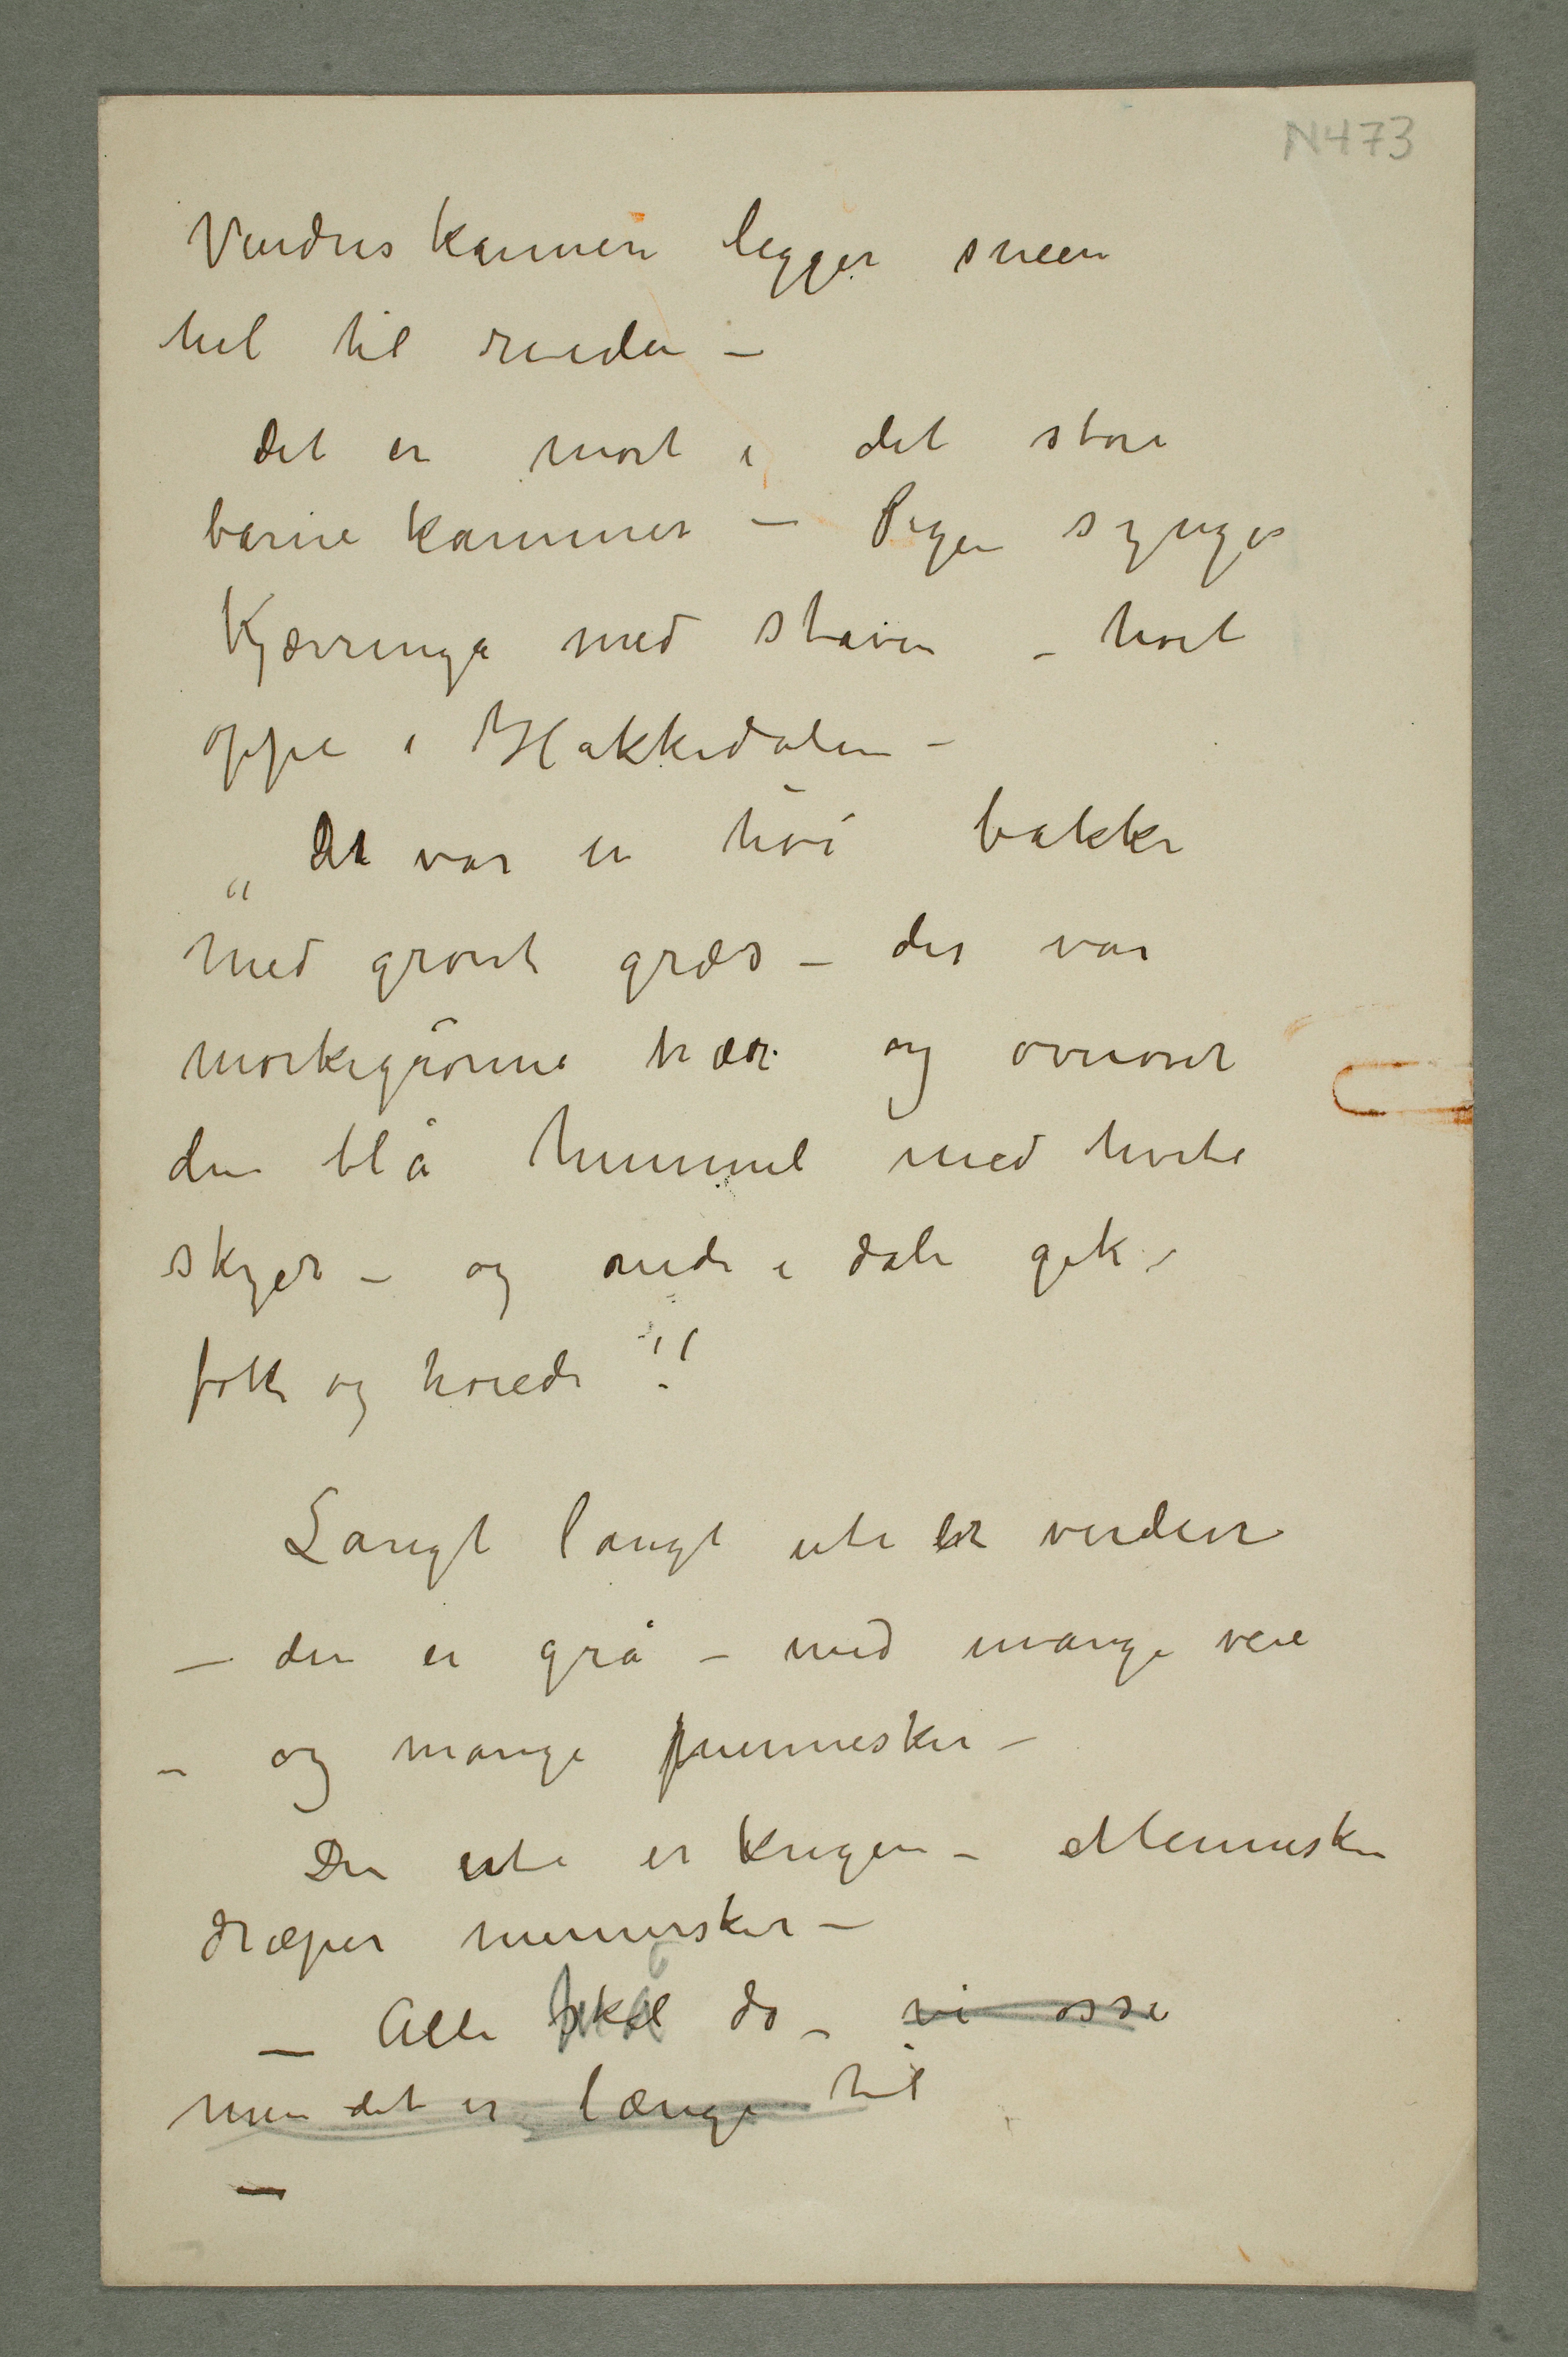 N473
Vindus karmen legger sneen
hel til ruden –
Det er mørt i det store
barne kammer – Pigen synger
Kjærringa med staven – høit
oppe i Hakkedalen –
„Det var en høi bakke
med grønt græs – der var
mørkegrønne trær og overover
den blå himmel med hvite
skyer – og nede i dale gik
folk og hørede"
Langt langt ute er verden
– den er grå – med mange veie
– og mange mennesker –
Der ute er krigen – Mennesker
dræper mennesker –
– Alle skal dø – vi osse
men det er længe til
–